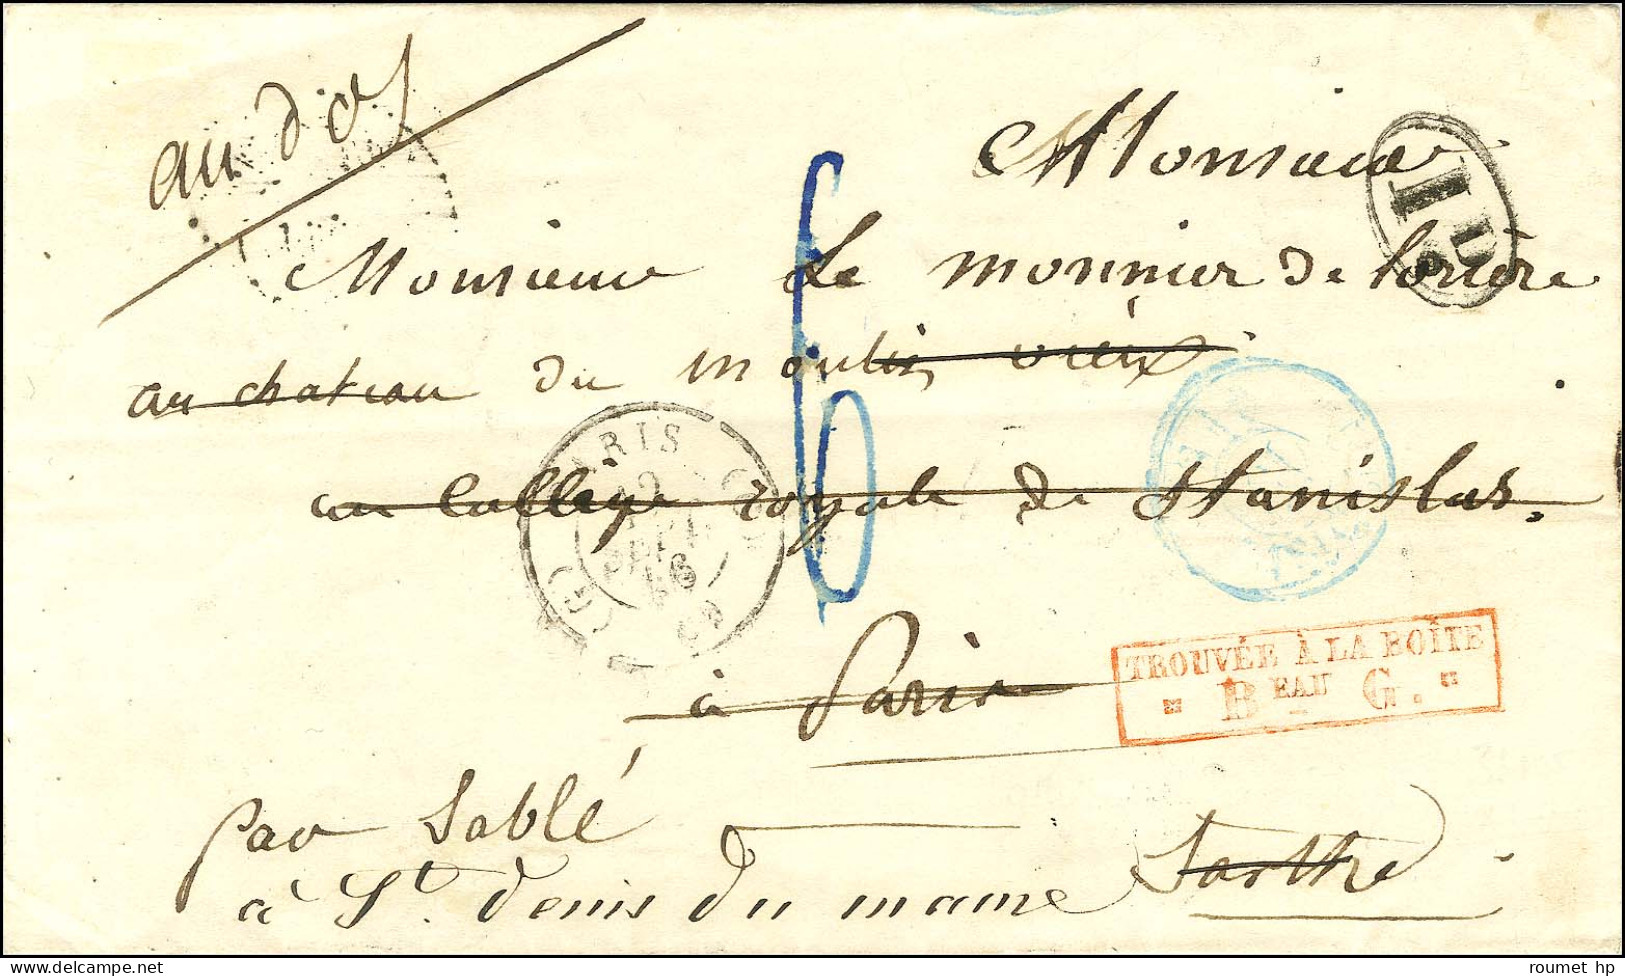 au dos
Monsieur
Monsieur Le monnier de lorière
au chateau du moulin vieux
au Collège royale de Stanislas.
à Paris
par Sablé
Sarthe
à St. denis du maine
PARIS
12
SEPT
46
ID
TROUVÉE À LA BOÎTE
" BEAU G. "
6
roumet hp